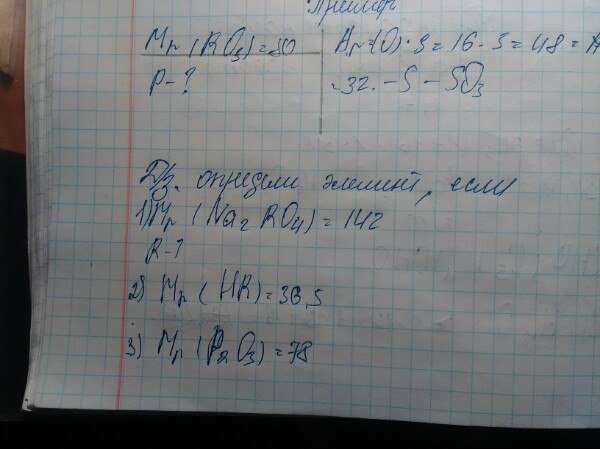 Пример
Mr(RO3)=80
Ar(O)·3=16·3=48=A
P-?
=32.-S-SO3
Дз. определи элемент, если
1) Mr(Na2RO4)=142
R-?
2) Mr(HR)=36,5
3) Mr(P2O3)=78